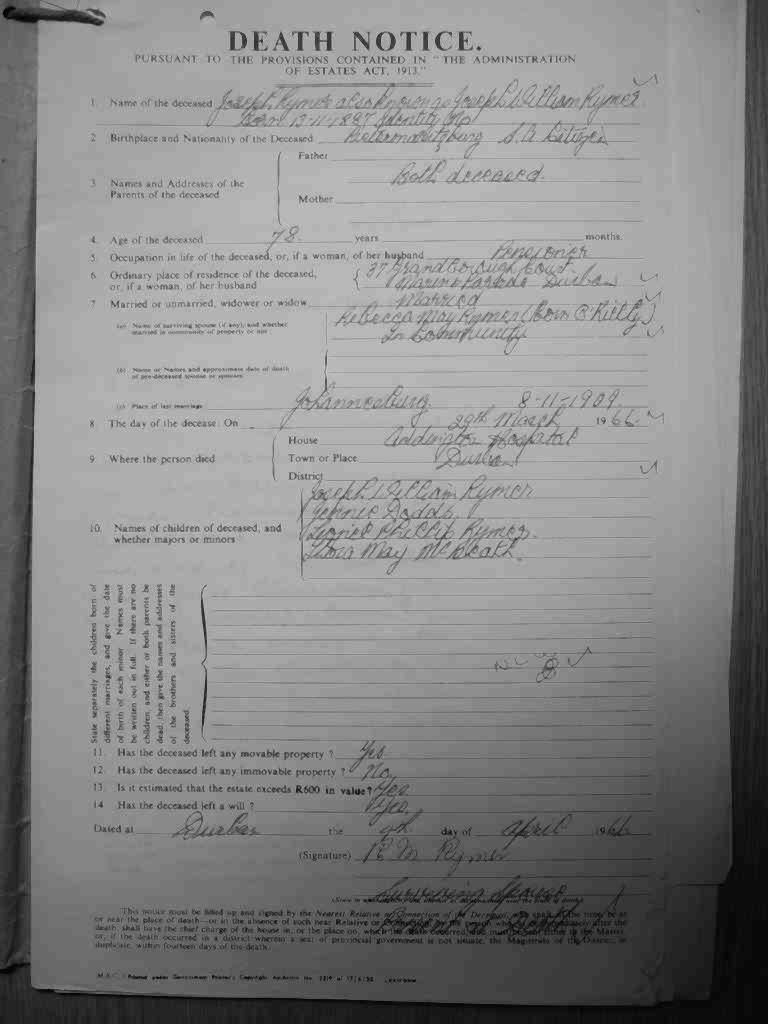 DEATH NOTICE.
PURSUANT TO THE PROVISIONS CONTAINED IN "THE ADMINISTRATION
OF ESTATES ACT, 1913."
1. Name of the deceased Joseph Rymer also known as Joseph William Rymer.
Born 13-11-1887 Identity No
2 Birthplace and Nationality of the Deceased Pietermaritzburg S.A. Citizen
Father
Both deceased.
3 Names and Addresses of the
Parents of the deceased
Mother
4. Age of the deceased 78. years months.
5. Occupation in life of the deceased, or, if a woman, of her husband Pensioner
6. Ordinary place of residence of the deceased, 37 Grandborough Court
or, if a woman, of her husband Marine Parade Durban
7 Married or unmarried, widower or widow Married
(a) Name of surviving spouse (if any), and whether Rebecca May Rymer (born O'Rielly)
married in community of property or not: In Community
(b) Name or Names and approximate date of death
of pre-deceased spouse or spouses
(c) Place of last marriage Johannesburg. 8-11-1909.
8 The day of the decease: On 29th March 1966.
House Addington Hospital
9 Where the person died Town or Place Durban
District
Joseph William Rymer
Dodds
10. Names of children of deceased, and Lionel Phillip Rymer.
whether majors or minors May
State separately the children born of
different marriages, and give the date
of birth of each minor Names must
be written out in full. If there are no
children, and either or both parents be
dead, then give the names and addresses
of the brothers and sisters of the
deceased
11. Has the deceased left any movable property ? Yes.
12. Has the deceased left any immovable property ? No.
13. Is it estimated that the estate exceeds R600 in value? Yes.
14 Has the deceased left a will ? Yes.
Dated at Durban the day of April 1966
(Signature) R M Rymer
Surviving Spouse
This notice must be filled up and signed by the Nearest Relative or Connection of the Deceased, who shall at the time be at
or near the place of death—or in the absence of such near Relative or
death shall have the chief charge of the house in, or the place on, which the death occurred,
or, if the death occurred in a district wherein a seat of provincial government is not situate, the Magistrate of the District, in
duplicate, within fourteen days of the death.